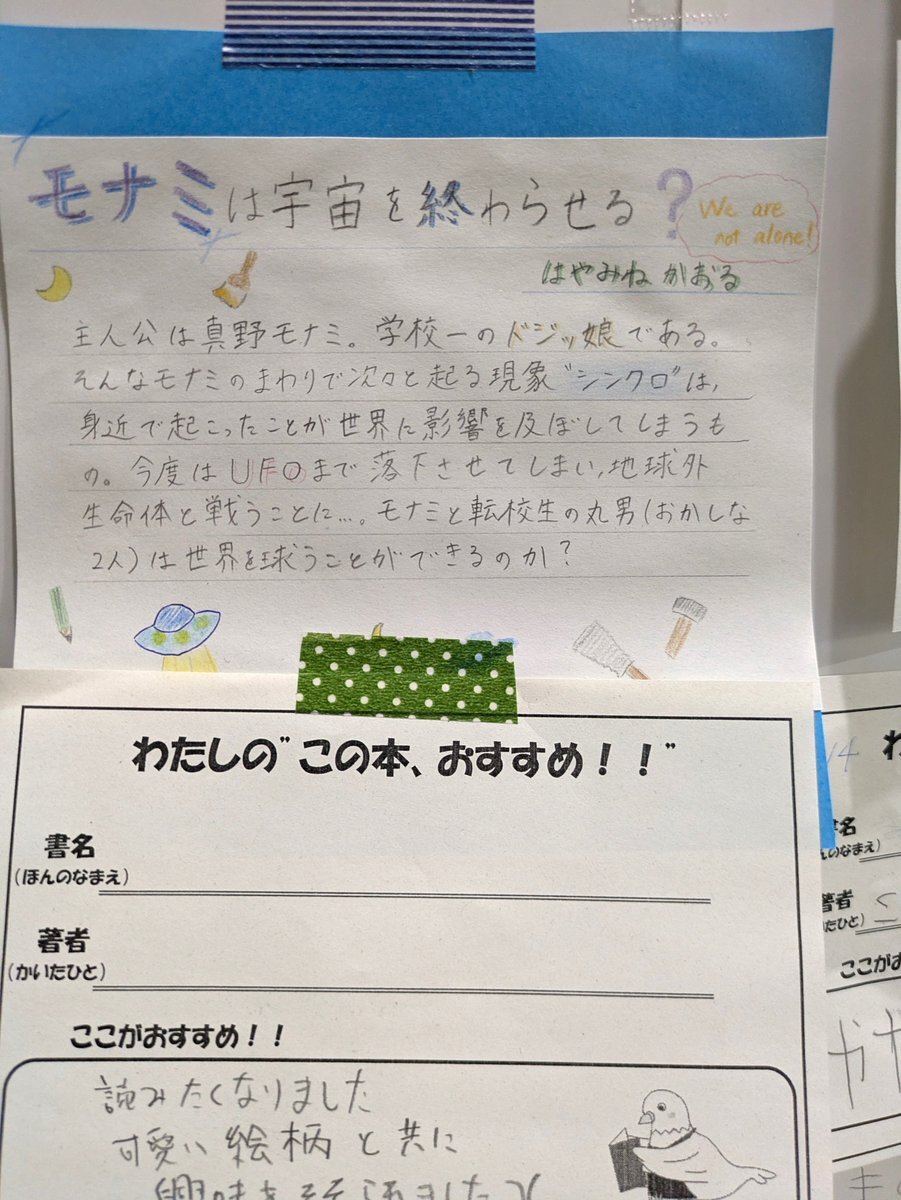 モナミは宇宙を終わらせる?
We are
not alone!
はやみねかおる
主人公は真野モナミ。学校一のドジッ娘である。
そんなモナミのまわりで次々と起る現象"シンクロ"は、
身近で起こったことが世界に影響を及ぼしてしまうも
の。今度はUFOまで落下させてしまい、地球外
生命体と戦うことに…。モナミと転校生の丸男(おかしな
2人)は世界を球うことができるのか?
わたしの"この本、おすすめ!!"
書名
(ほんのなまえ)
著者
(かいたひと)
ここがおすすめ!!
読みたくなりました
可愛い絵柄と共に
14
ここがお